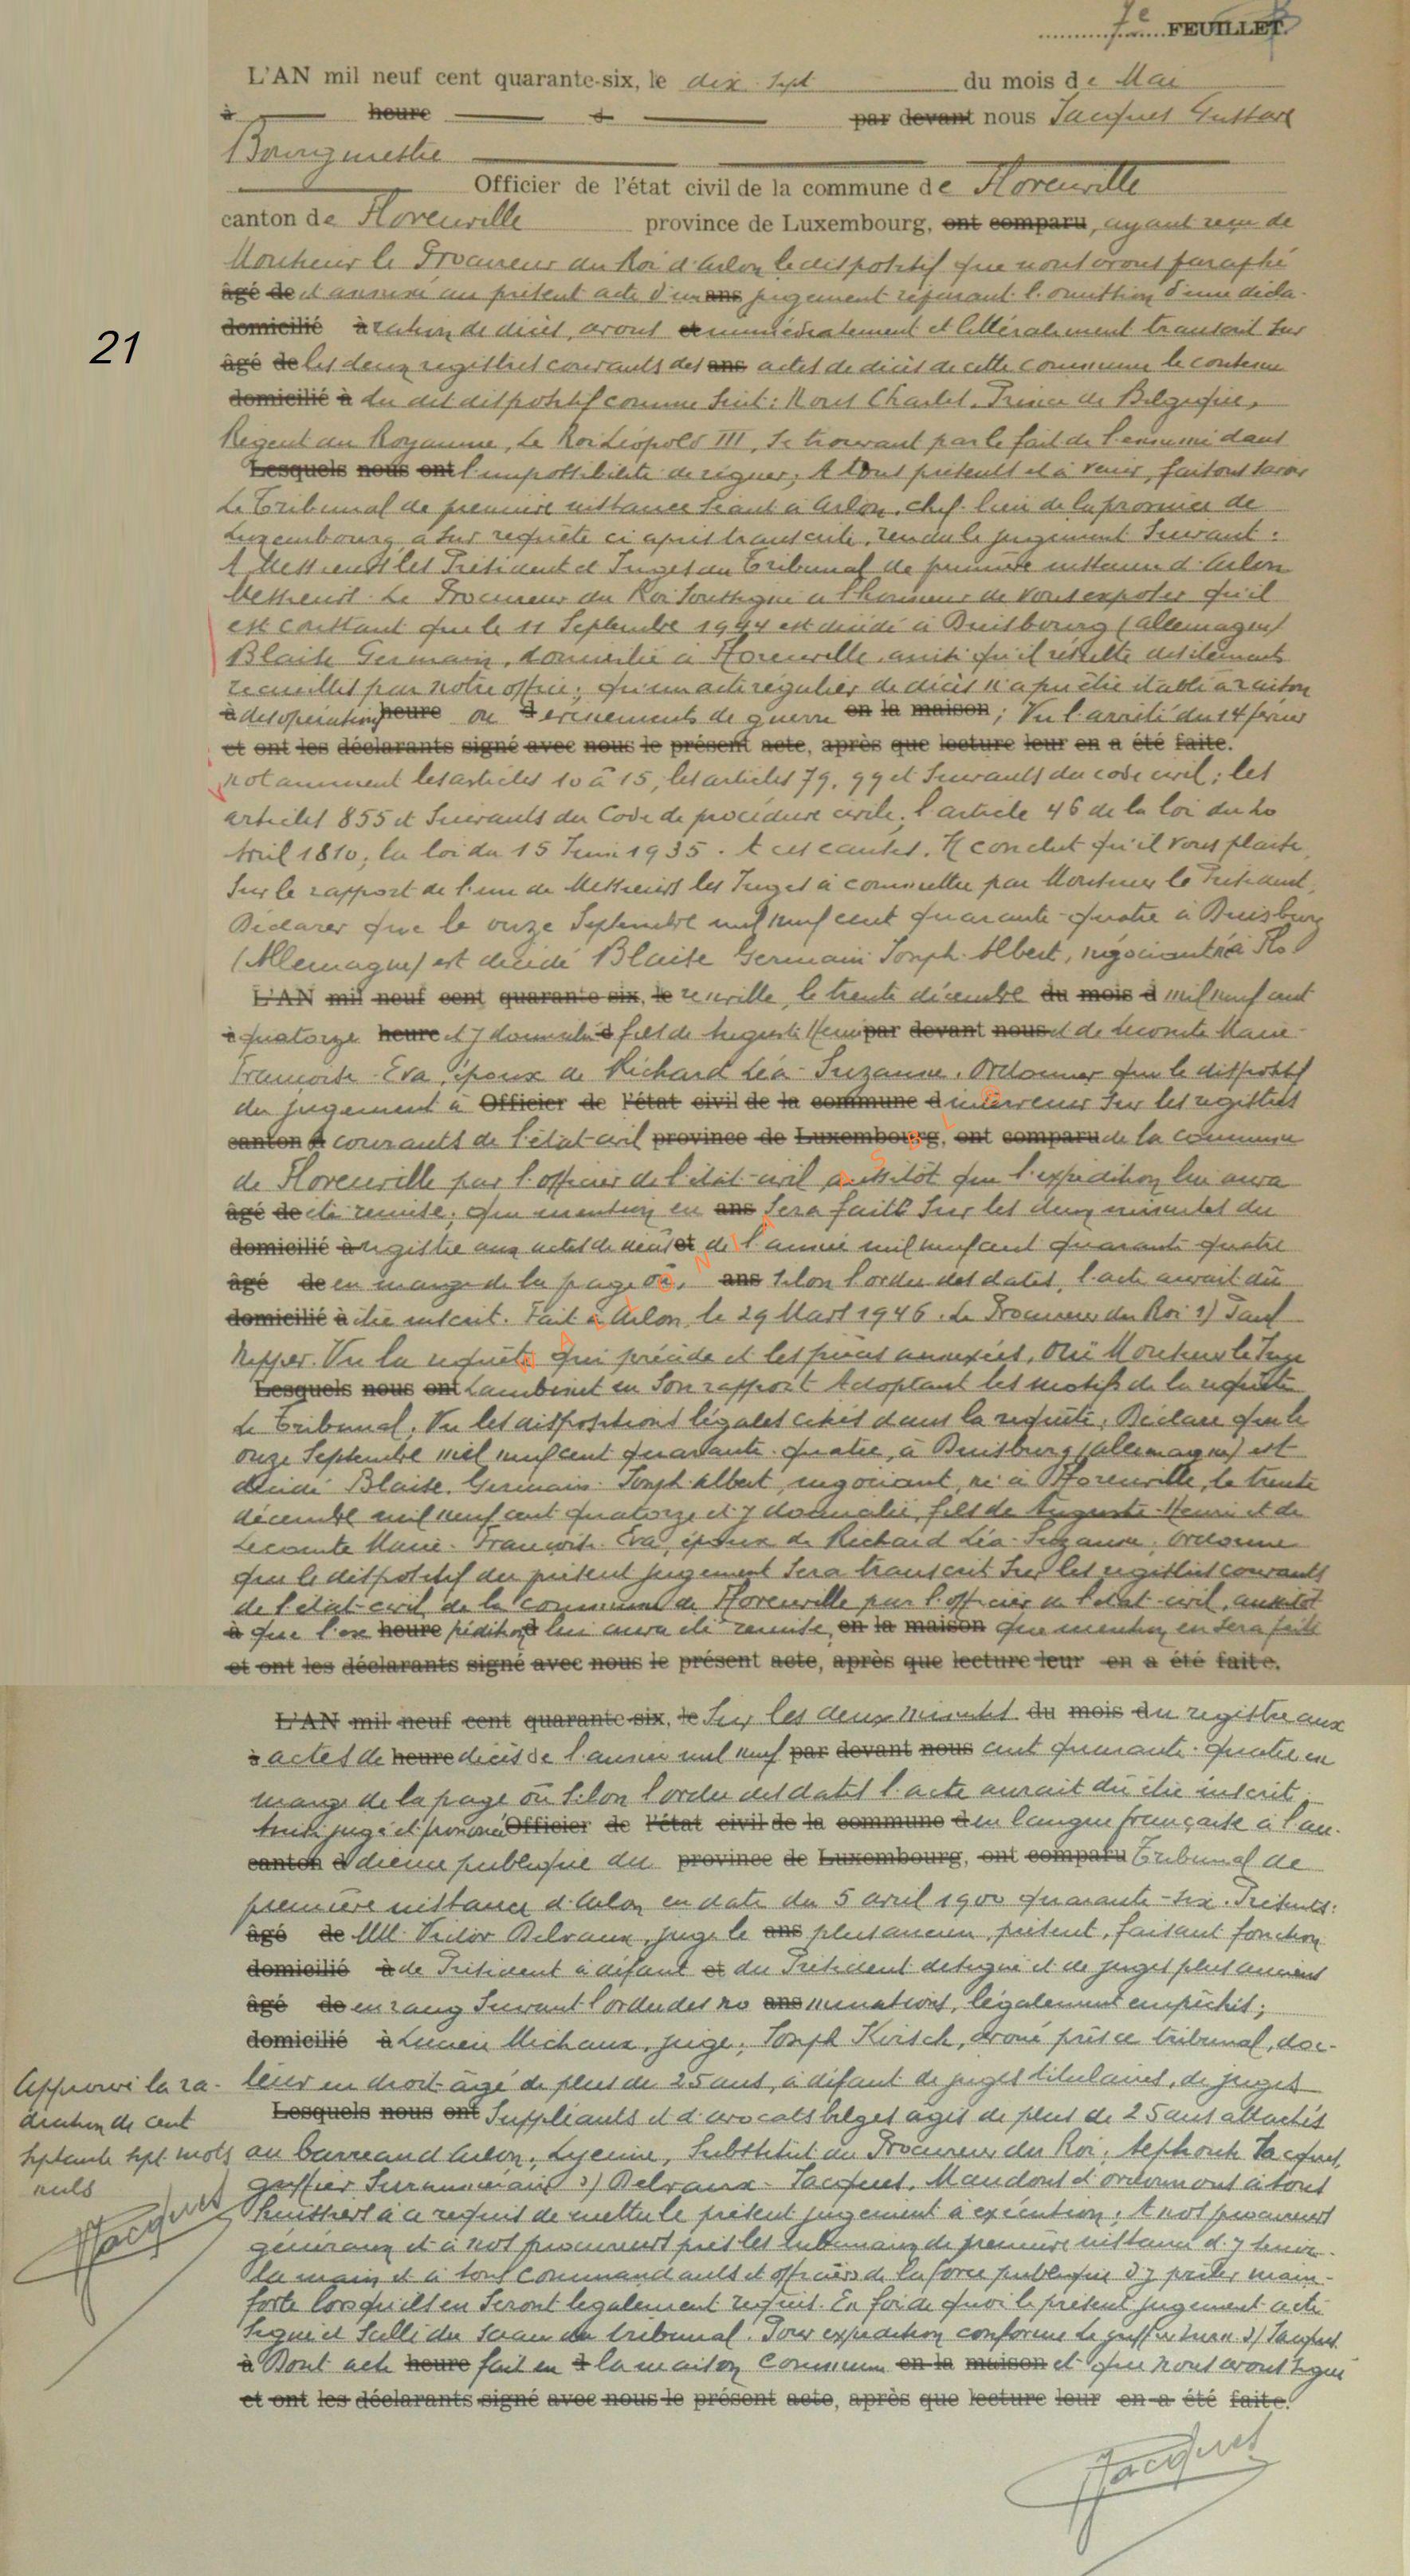 7e FEUILLET.
L'AN mil neuf cent quarante-six, le dix-sept du mois de Mai
à heure d par devant nous Jacques Gustave
Bourgmestre
Officier de l'état civil de la commune de Florenville
canton de Florenville province de Luxembourg, ont comparu, ayant reçu de
Monsieur le Procureur du Roi d'Arlon le dispositif que nous avons paraphé
âgé de et annexé au présent acte d'un ans jugement réparant l'omission d'une décla-
21
domicilié à ration de décès, avons et immédiatement et littéralement transcrit sur
âgé de les deux registres courants des ans actes de décès de cette commune le contenu
domicilié à du dit dispositif comme suit: Nous Charles, Prince de Belgique,
Régent du Royaume, Le Roi Léopold III, se trouvant par le fait de l'ennemi dans
Lesquels nous ont l'impossibilité de régner; A tous présents et à venir, faisons savoir
Le Tribunal de première instance séant à Arlon, chef-lieu de la province de
Luxembourg a sur requête ci après transcrite, rendu le jugement suivant:
A Messieurs les Président et Juges du Tribunal de première instance d'Arlon
Messieurs. Le Procureur du Roi soussigné a l'honneur de vous exposer qu'il
est constant que le 11 Septembre 1944 est décédé à Duisbourg (Allemagne)
Blaise Germain, domicilié à Florenville, ainsi qu'il résulte des éléments
recueillis par notre office; qu'un acte régulier de décès n'a pu être établi à raison
à des opérations heure ou d évènements de guerre en la maison; Vu l'arrêté du 14 février
et ont les déclarants signé avec nous le présent acte, après que lecture leur en a été faite.
notamment les articles 10 à 15, les articles 79, 99 et suivants du code civil; les
articles 855 et suivants du Code de procédure civile; l'article 46 de la loi du 20
Avril 1810; la loi du 15 Juin 1935. A ces causes. Il conclut qu'il vous plaise,
sur le rapport de l'un de Messieurs les Juges à commettre par Monsieur le Président,
Déclarer que le onze Septembre mil neuf cent quarante-quatre à Duisburg
(Allemagne) est décédé Blaise Germain Joseph-Albert, négociant né à Flo
L'AN mil neuf cent quarante-six, le renville, le trente décembre du mois d mil neuf cent
à quatorze heure et y domicilié d fils de Auguste Henri par devant nous et de Lecomte Marie-
Francoise-Eva, époux de Richard Léa-Suzanne. Ordonner que le dispositif
du jugement à Officier de l'état civil de la commune d intervenir sur les registres
canton d courants de l'état-civil province de Luxembourg, ont comparu de la commune
de Florenville par l'officier de l'état-civil aussitôt que l'expédition lui aura
âgé de été remise; que mention en ans sera faite sur les deux minutes du
domicilié à registre aux actes de décès et de l'année mil neuf cent quarante-quatre
âgé de en marge de la page où, ans selon l'ordre des dates, l'acte aurait dû
domicilié à être inscrit. Fait à Arlon, le 29 Mars 1946. Le Procureur du Roi s)
Vu la requête qui précède et les pièces annexées, Ouï Monsieur le Juge
Lesquels nous ont Lambinet en son rapport Adoptant les motifs de la requête
Le Tribunal, Vu les dispositions légales citées dans la requête, Déclare que le
onze Septembre mil neuf cent quarante-quatre, à Duisburg (Allemagne) est
décédé Blaise, Germain-Joseph-Albert, négociant, né à Florenville, le trente
décembre mil neuf cent quatorze et y domicilié, fils de Auguste-Henri et de
Lecomte Marie-Francoise-Eva, époux de Richard Léa-Suzanne, Ordonne
que le dispositif du présent jugement sera transcrit sur les registres courants
de l'état-civil de la commune de Florenville par l'officier de l'état-civil, aussitôt
à que l'ex heure pédition d lui aura été remise, en la maison que mention en sera faite
et ont les déclarants signé avec nous le présent acte, après que lecture leur en a été faite.
L'AN mil neuf cent quarante-six, le sur les deux minutes du mois du registre aux
à actes de heure décès de l'année mil neuf par devant nous cent quarante-quatre en
marge de la page où selon l'ordre des dates l'acte aurait dû être inscrit.
Ainsi jugé et prononcé Officier de l'état civil de la commune d en langue française à l'au-
canton d dience publique du province de Luxembourg, ont comparu Tribunal de
première instance d'Arlon en date du 5 avril 1900 quarante-six. Présents:
âgé de MM. Victor Delvaux, juge le ans plus ancien présent, faisant fonction
domicilié à de Président à défaut et du Président désigné et de juges plus anciens
âgé de en rang suivant l'ordre des no ans minations, légalement empêchés;
domicilié à Lucien Michaux, juge; Joseph Kirsch, avoué près ce tribunal, doc-
teur en droit âgé de plus de 25 ans, à défaut de juges titulaires, de juges
Lesquels nous ont suppléants et d'avocats belges âgés de plus de 25 ans attachés
au barreau d'Arlon; substitut du Procureur du Roi; Alphonse Jacques,
greffier surnuméraire s) Delvaux-Jacques. Mandons et ordonnons à tous
huissiers à ce requis de mettre le présent jugement à exécution; A nos procureurs
généraux et à nos procureurs près les tribunaux de première instance d'y tenir
la main et à tous commandants et officiers de la force publique d'y prêter main-
forte lorsqu'ils en seront légalement requis. En foi de quoi le présent jugement a été
signé et scellé du sceau du tribunal. Pour expédition conforme Le greffier s) Jacques.
à Dont acte heure fait en d la maison commune en la maison et que nous avons signé
et ont les déclarants signé avec nous le présent acte, après que lecture leur en a été faite.
Approuvé la ra-
diation de cent
septante sept mots
nuls
Jacques
Jacques